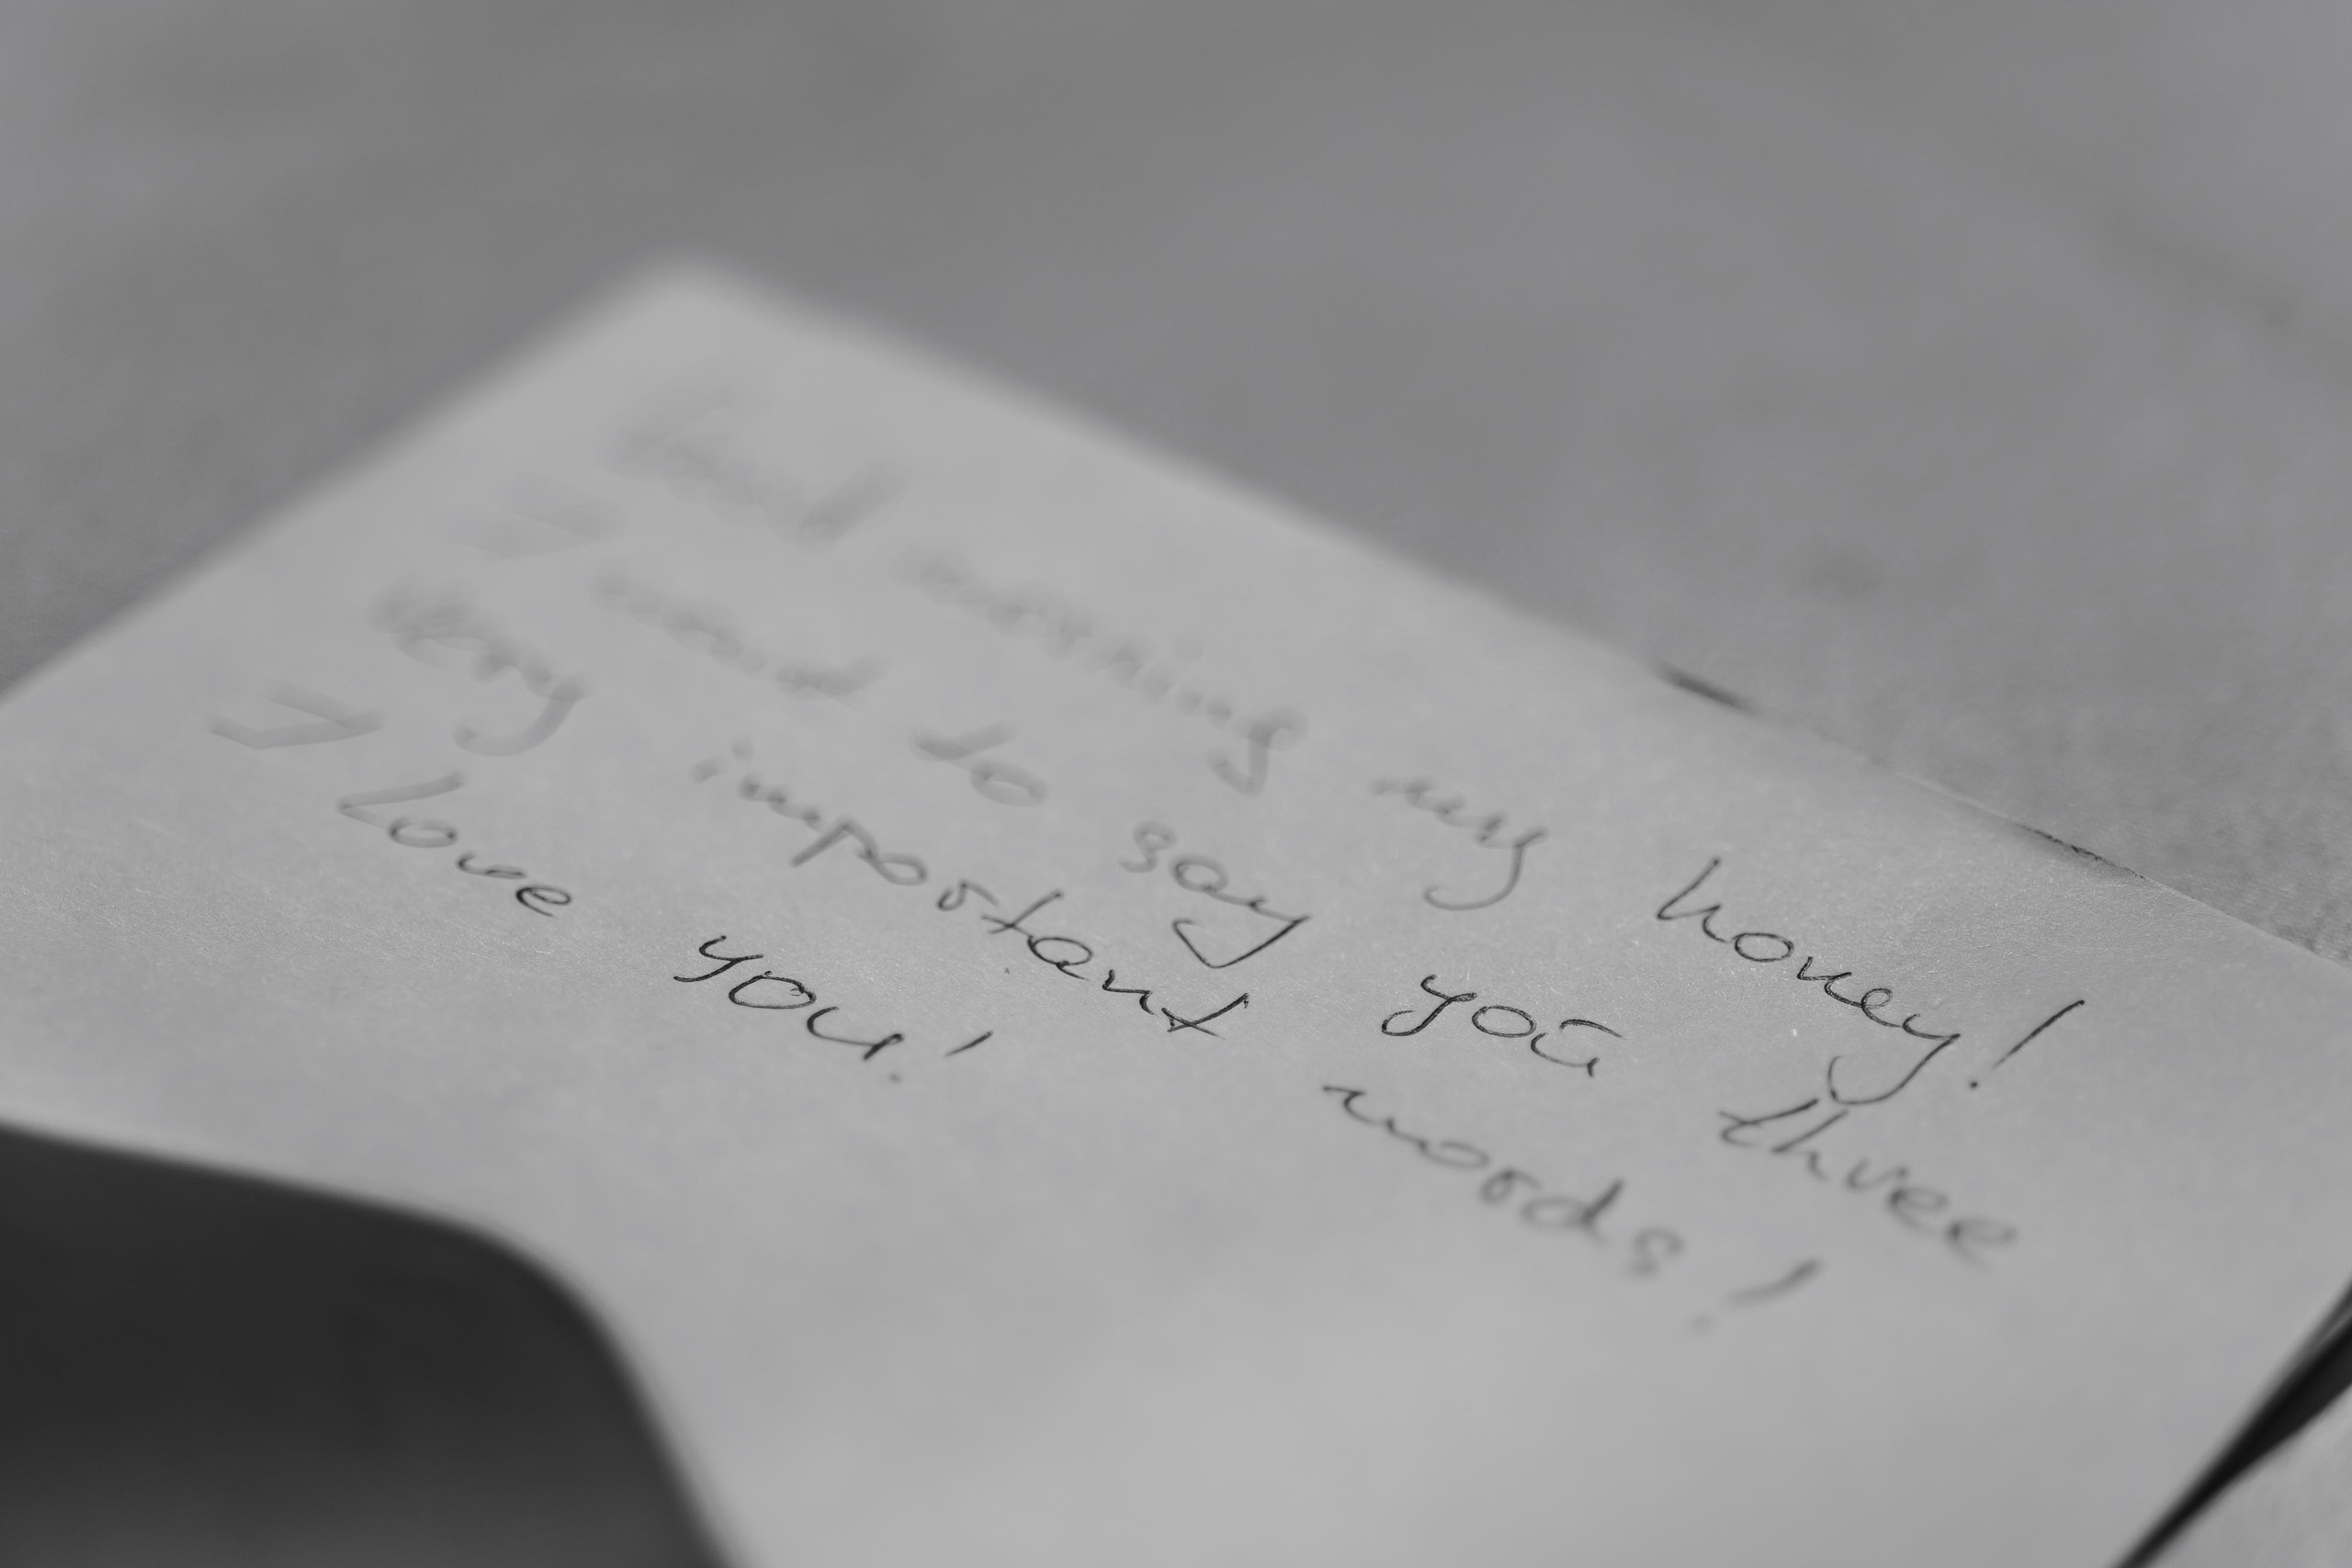 Good morning my honey!
I want to say you three
very important words!
I Love you!